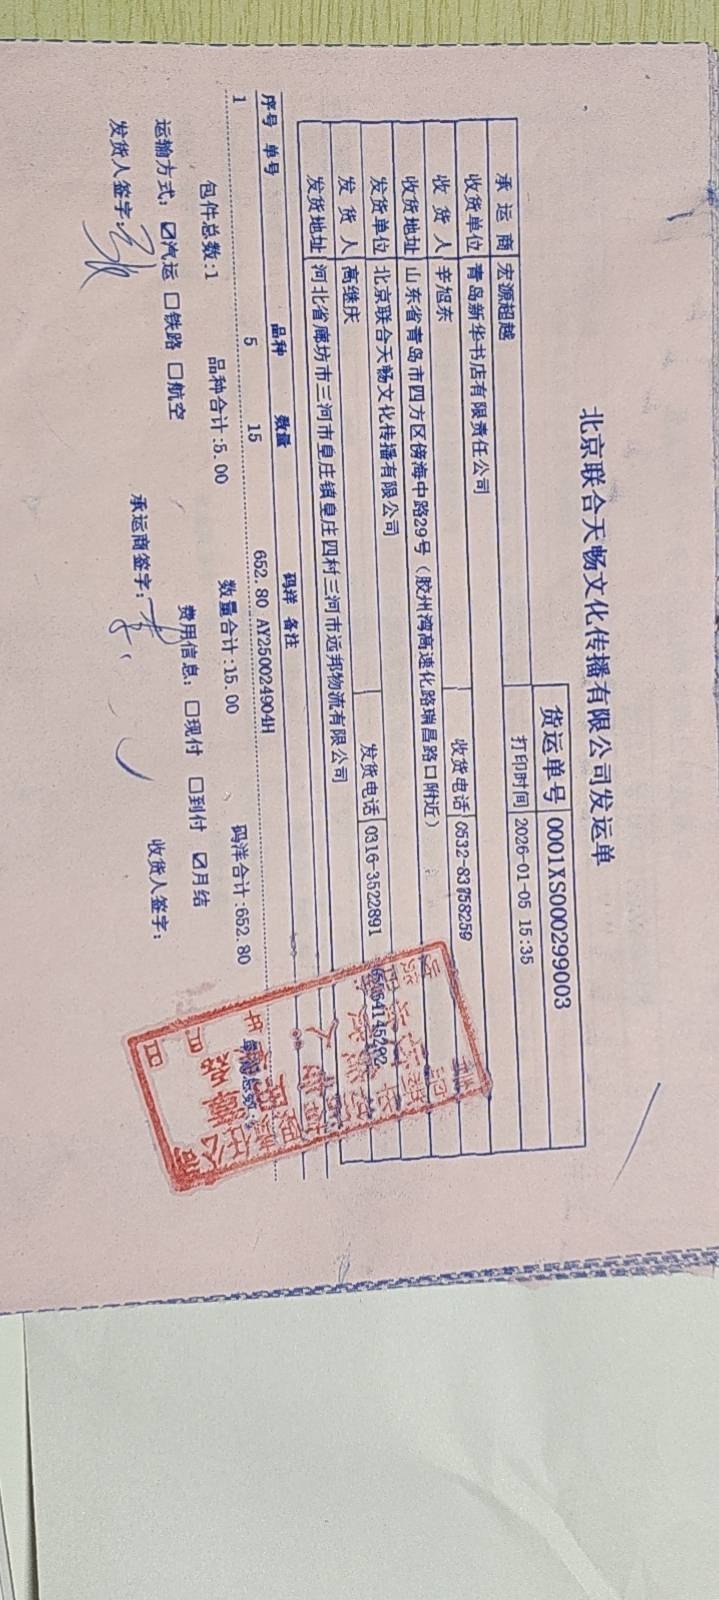 北京联合天畅文化传播有限公司发运单
货运单号 0001XS000299003
承运商 宏源超越 打印时间 2026-01-05 15:35
收货单位 青岛新华书店有限责任公司
收货人 辛旭东 收货电话 0532-83758259
收货地址 山东省青岛市四方区傍海中路29号（胶州湾高速化路瑞昌路口附近）
发货单位 北京联合天畅文化传播有限公司
发货人 高继庆 发货电话 0316-3522891
发货地址 河北省廊坊市三河市皇庄镇皇庄四村三河市远邦物流有限公司
序号 单号 品种 数量 码洋 备注
1 5 15 652.80 AY250024904H
包件总数:1 品种合计:5.00 数量合计:15.00 码洋合计:652.80
运输方式: ☑汽运 □铁路 □航空 费用信息: □现付 □到付 ☑月结
发货人签字: 承运商签字: 收货人签字:
年 月 日